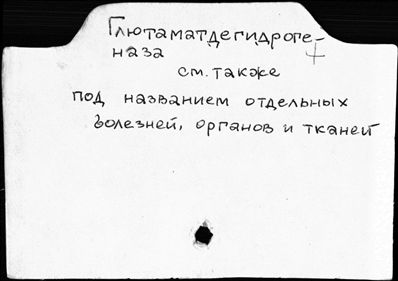 Глютаматдегидроге-
наза
см. также
под названием отдельных
болезней, органов и тканей